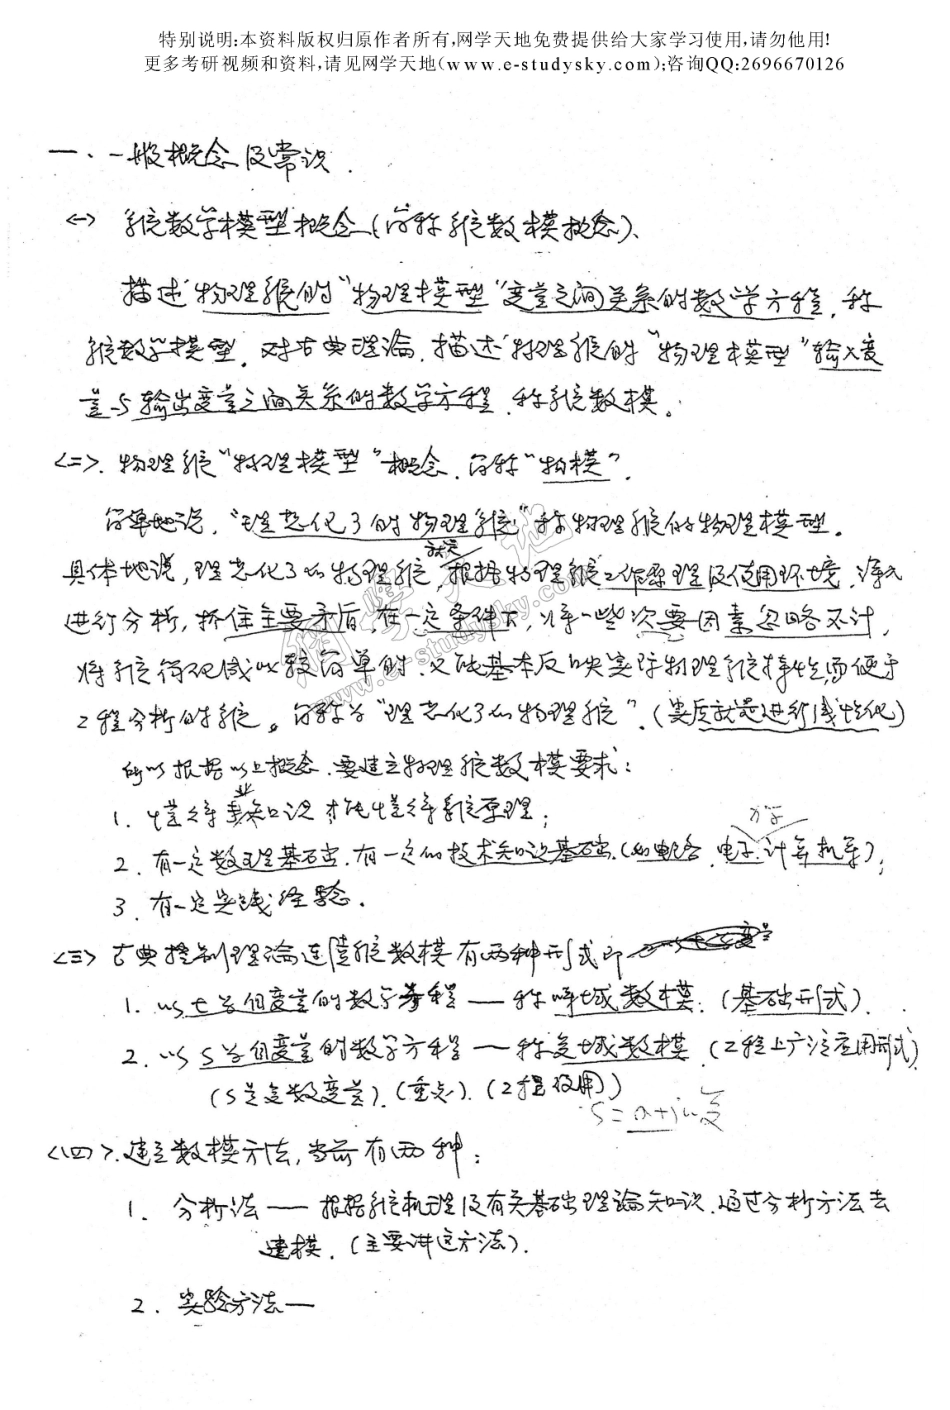 特别说明:本资料版权归原作者所有,网学天地免费提供给大家学习使用,请勿他用!
更多考研视频和资料,请见网学天地(www.e-studysky.com);咨询QQ:2696670126
一、一般概念及常识.
<一> 系统数学模型概念(简称系统数模概念)、
描述“物理系统的“物理模型”变量之间关系的数学方程,称
系统数学模型. 对古典理论,描述“物理系统的“物理模型”输入变
量与输出变量之间关系的数学方程,称系统数模。
<二>. 物理系统“物理模型”概念,简称“物模”.
简单地说,“理想化了的物理系统”称物理系统的物理模型.
具体地说,理想化了的物理系统,就是根据物理系统工作原理及使用环境,
进行分析,抓住主要矛盾,在一定条件下,将一些次要因素忽略不计,
将系统简化成以较简单的、又能基本反映实际物理系统特性而便于
工程分析的系统。简称为“理想化了的物理系统”.(实质就是进行线性化)
所以根据以上概念,要建立物理系统数模要求:
1. 懂得专业知识才能懂得系统原理;
2. 有一定数理基础,有一定的技术知识基础.(如电路、电子、力学、计算机等);
3. 有一定实践经验.
<三> 古典控制理论连续系统数模有两种形式即
1. 以t为自变量的数学方程 — 称时域数模.(基础形式).
2. 以S为自变量的数学方程 — 称复域数模(工程上广泛应用形式)
(S是复数变量).(重点).(工程设用)
S=a+jω
<四>. 建立数模方法,当前有两种:
1. 分析法 — 根据系统机理及有关基础理论知识,通过分析方法去
建模.(主要讲这方法).
2. 实验方法 —
网学天地
www.e-studysky.com